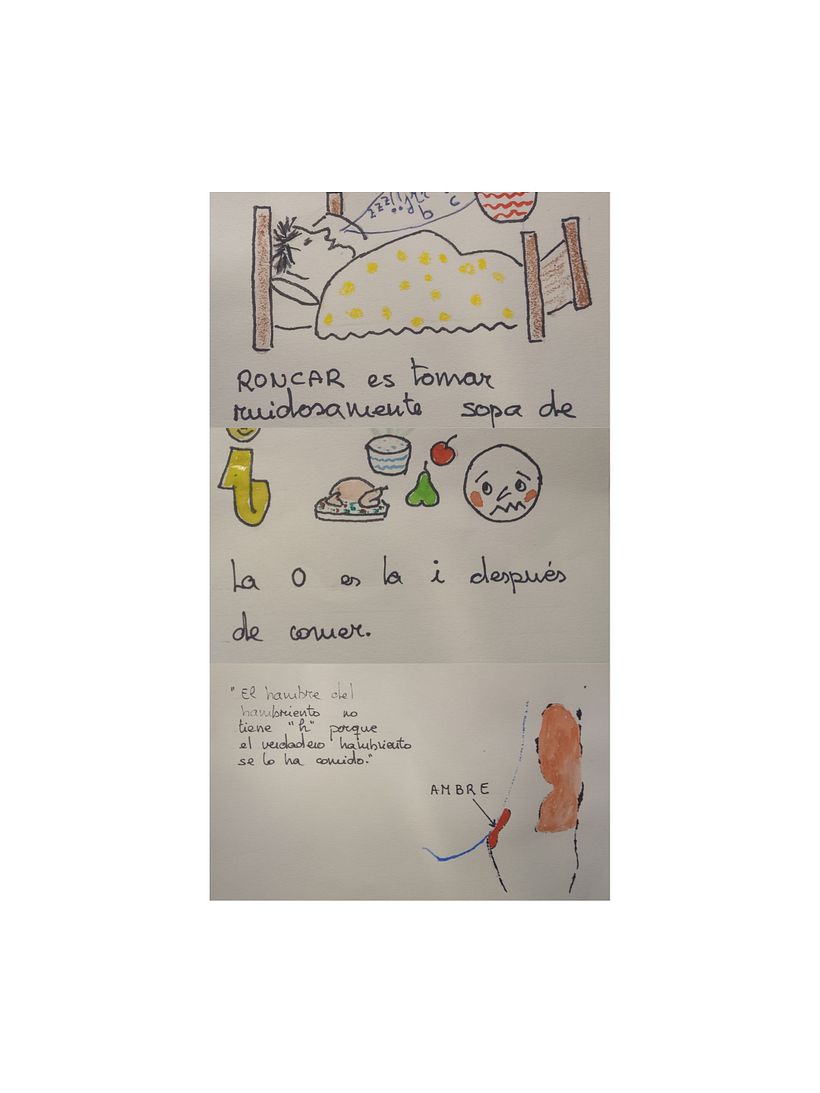 zzz!!
RONCAR es tomar
ruidosamente sopa de
La O es la i después
de comer.
"El hambre del
hambriento no
tiene "h" porque
el verdadero hambriento
se la ha comido."
AMBRE